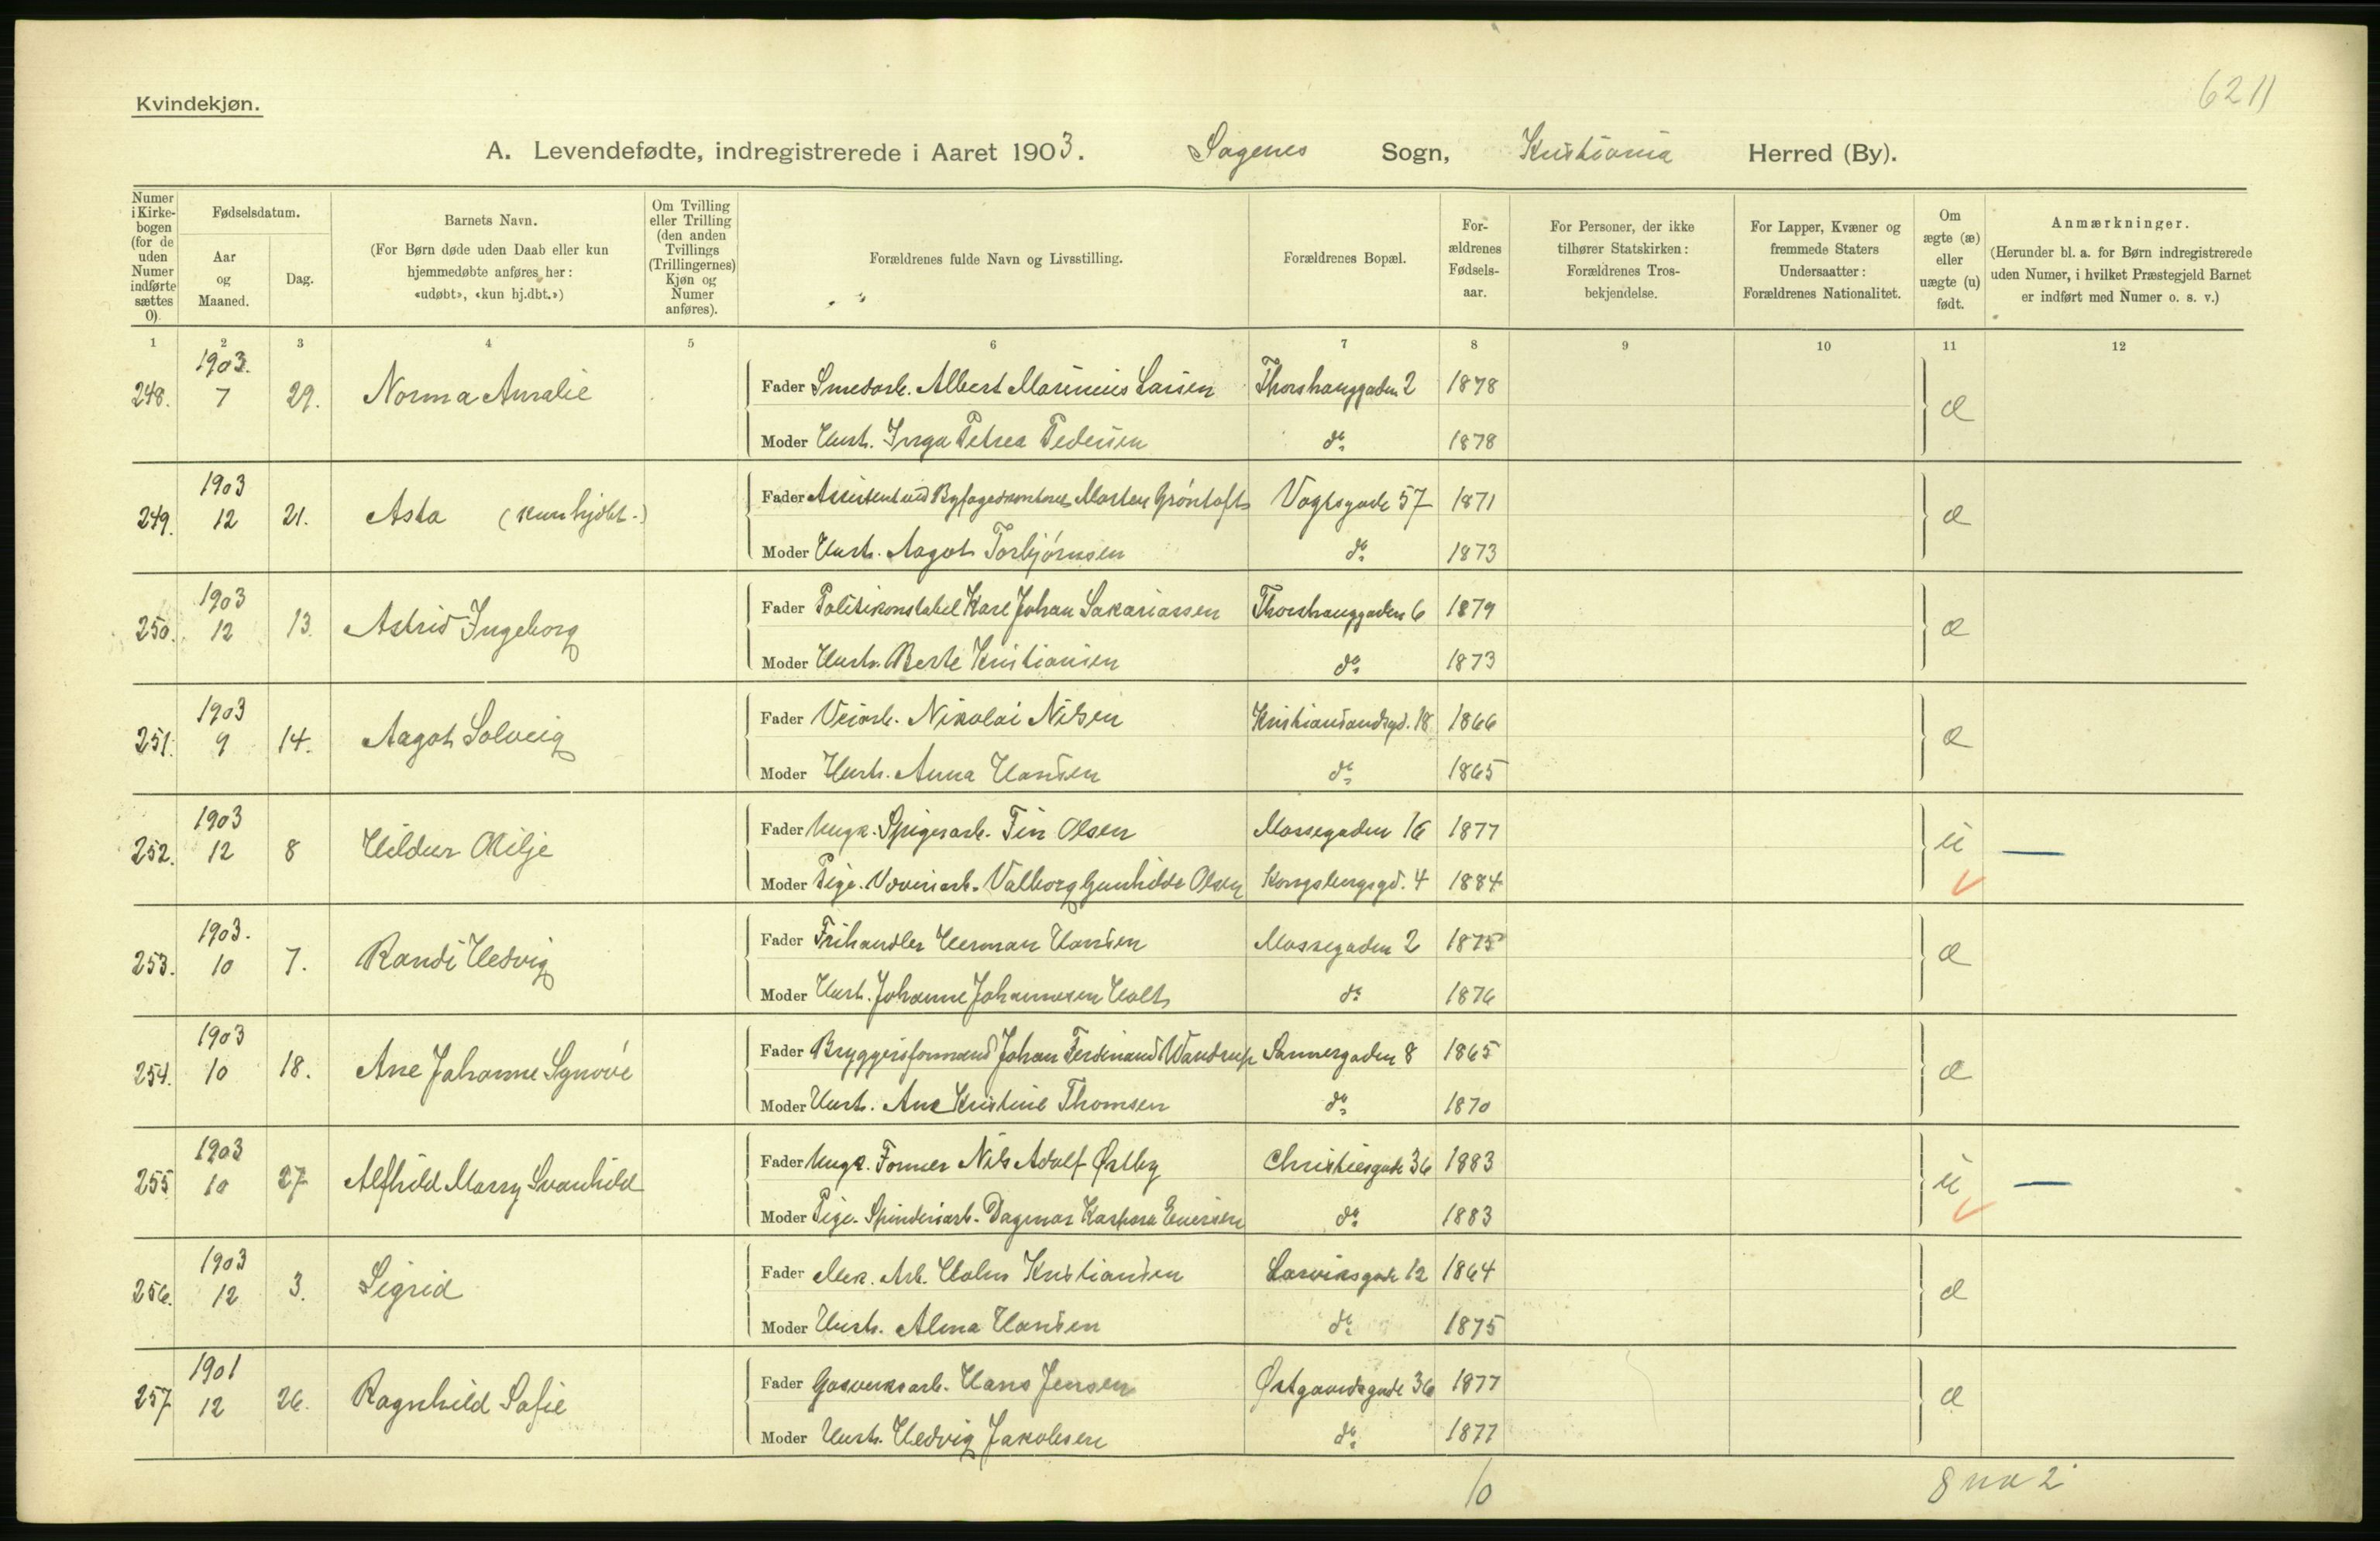 6211
Kvindekjøn.
A. Levendefødte, indregistrerede i Aaret 1903. Sagenes Sogn, Kristiania Herred (By).
Numer i Kirkebogen (for de uden Numer indførte sættes 0).
Fødselsdatum.
Aar og Maaned.
Dag.
Barnets Navn.
(For Børn døde uden Daab eller kun hjemmedøbte anføres her: «udøbt», «kun hj.dbt.»)
Om Tvilling eller Trilling (den anden Tvillings (Trillingernes) Kjøn og Numer anføres).
Forældrenes fulde Navn og Livsstilling.
Forældrenes Bopæl.
For-ældrenes Fødsels-aar.
For Personer, der ikke tilhører Statskirken: Forældrenes Tros-bekjendelse.
For Lapper, Kvæner og fremmede Staters Undersaatter: Forældrenes Nationalitet.
Om ægte (æ) eller uægte (u) født.
Anmærkninger.
(Herunder bl. a. for Børn indregistrerede uden Numer, i hvilket Præstegjeld Barnet er indført med Numer o. s. v.)
1 2 3 4 5 6 7 8 9 10 11 12
1903.
248. 7 29. Norma Amalie Fader Smedarb. Albert Marinius Larsen Thorshauggaden 2 1878 æ
Moder Hust. Inga Petrea Pedersen do 1878
1903
249. 12 21. Asta (kun hjdbt.) Fader Assistent ved Byfogedkontoret Morten Grøntoft Vogtsgade 57 1871 æ
Moder Hust. Aagot Torbjørnsen do 1873
1903
250. 12 13. Astrid Ingeborg Fader Politikonstabel Karl Johan Sakariassen Thorshauggaden 6 1879 æ
Moder Hust. Berte Kristiansen do 1873
1903
251. 9 14. Aagot Solveig Fader Veiarb. Nikolai Nilsen Kristiansandsgd. 18 1866 æ
Moder Hust. Anna Hansen do 1865
1903
252. 12 8 Hildur Otilje Fader Ungk. Spigerarb. Fin Olsen Mossegaden 16 1877 u
Moder Pige. Væveriarb. Valborg Gunhilde Olsen Kongsbergsgd. 4 1884
1903.
253. 10 7. Randi Hedvig Fader Frihandler Herman Hansen Mossegaden 2 1875 æ
Moder Hust. Johanne Johannesen Holt do 1876
1903
254. 10 18. Ane Johanne Synøve Fader Bryggeriformand Johan Ferdinand Wandrup Sannergaden 8 1865 æ
Moder Hust. Ane Kristine Thomsen do 1870
1903
255 10 27 Alfhild Marry Svanhild Fader Ungk. Former Nils Adolf Østby Christiesgade 36 1883 u
Moder Pige. Spinderiarb. Dagmar Kaspara Eversen do 1883
1903
256. 12 3. Sigrid Fader Mek. Arb. Holm Kristiansen Larviksgade 12 1864 æ
Moder Hust. Alma Hansen do 1875
1901
257 12 26. Ragnhild Sofie Fader Gasverksarb. Hans Jensen Østgaardsgade 36 1877 æ
Moder Hust. Hedvig Jakobsen do 1877
10